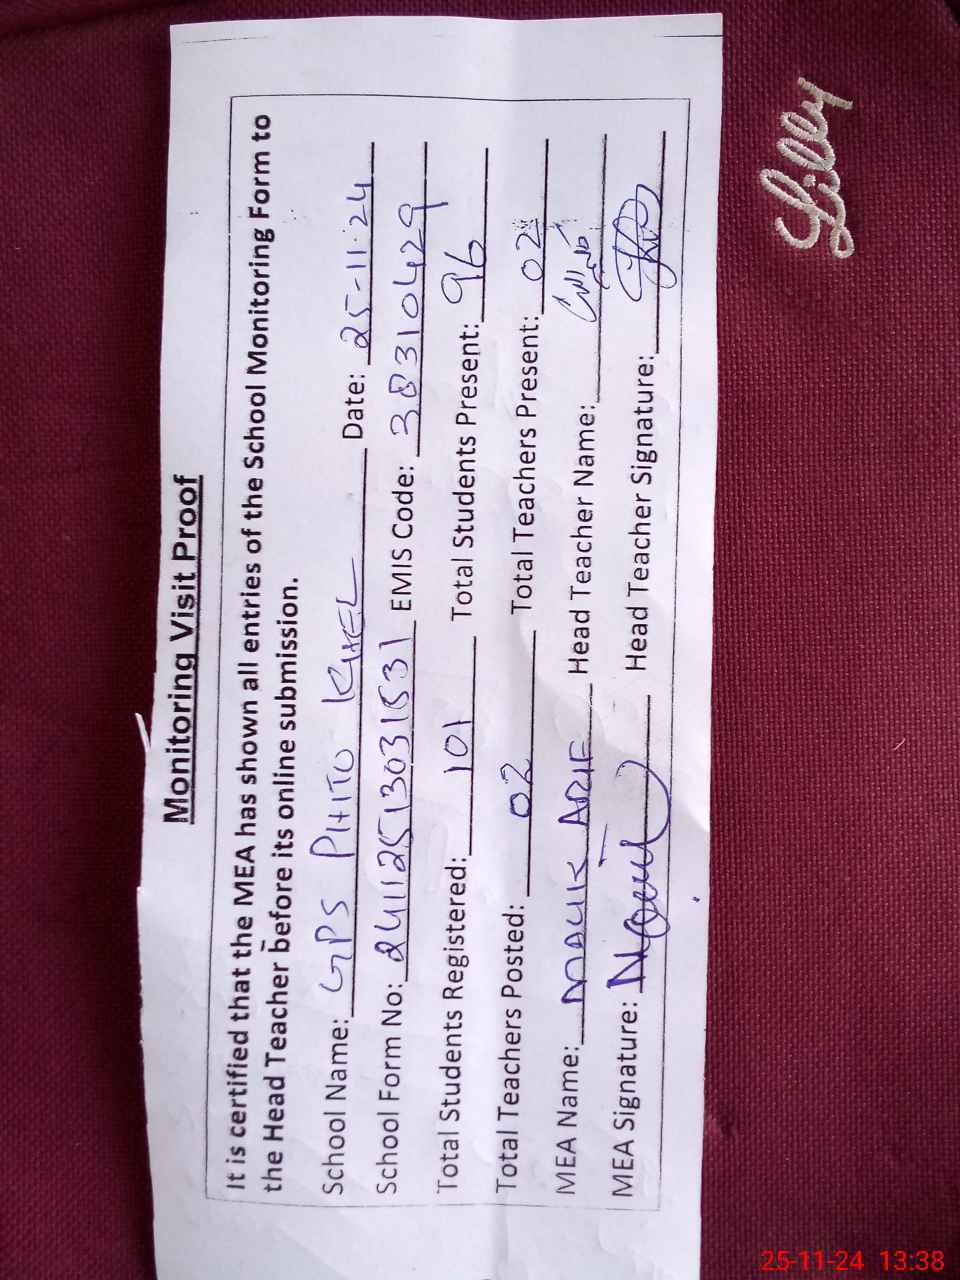 Monitoring Visit Proof
It is certified that the MEA has shown all entries of the School Monitoring Form to
the Head Teacher before its online submission.
School Name: GPS PHITO KHEL Date: 25-11-24
School Form No: 24112513031531 EMIS Code: 38310429
Total Students Registered: 101 Total Students Present: 96
Total Teachers Posted: 02 Total Teachers Present: 02
MEA Name: MALIK ARIF Head Teacher Name:
MEA Signature: Head Teacher Signature:
Lilly
25-11-24 13:38